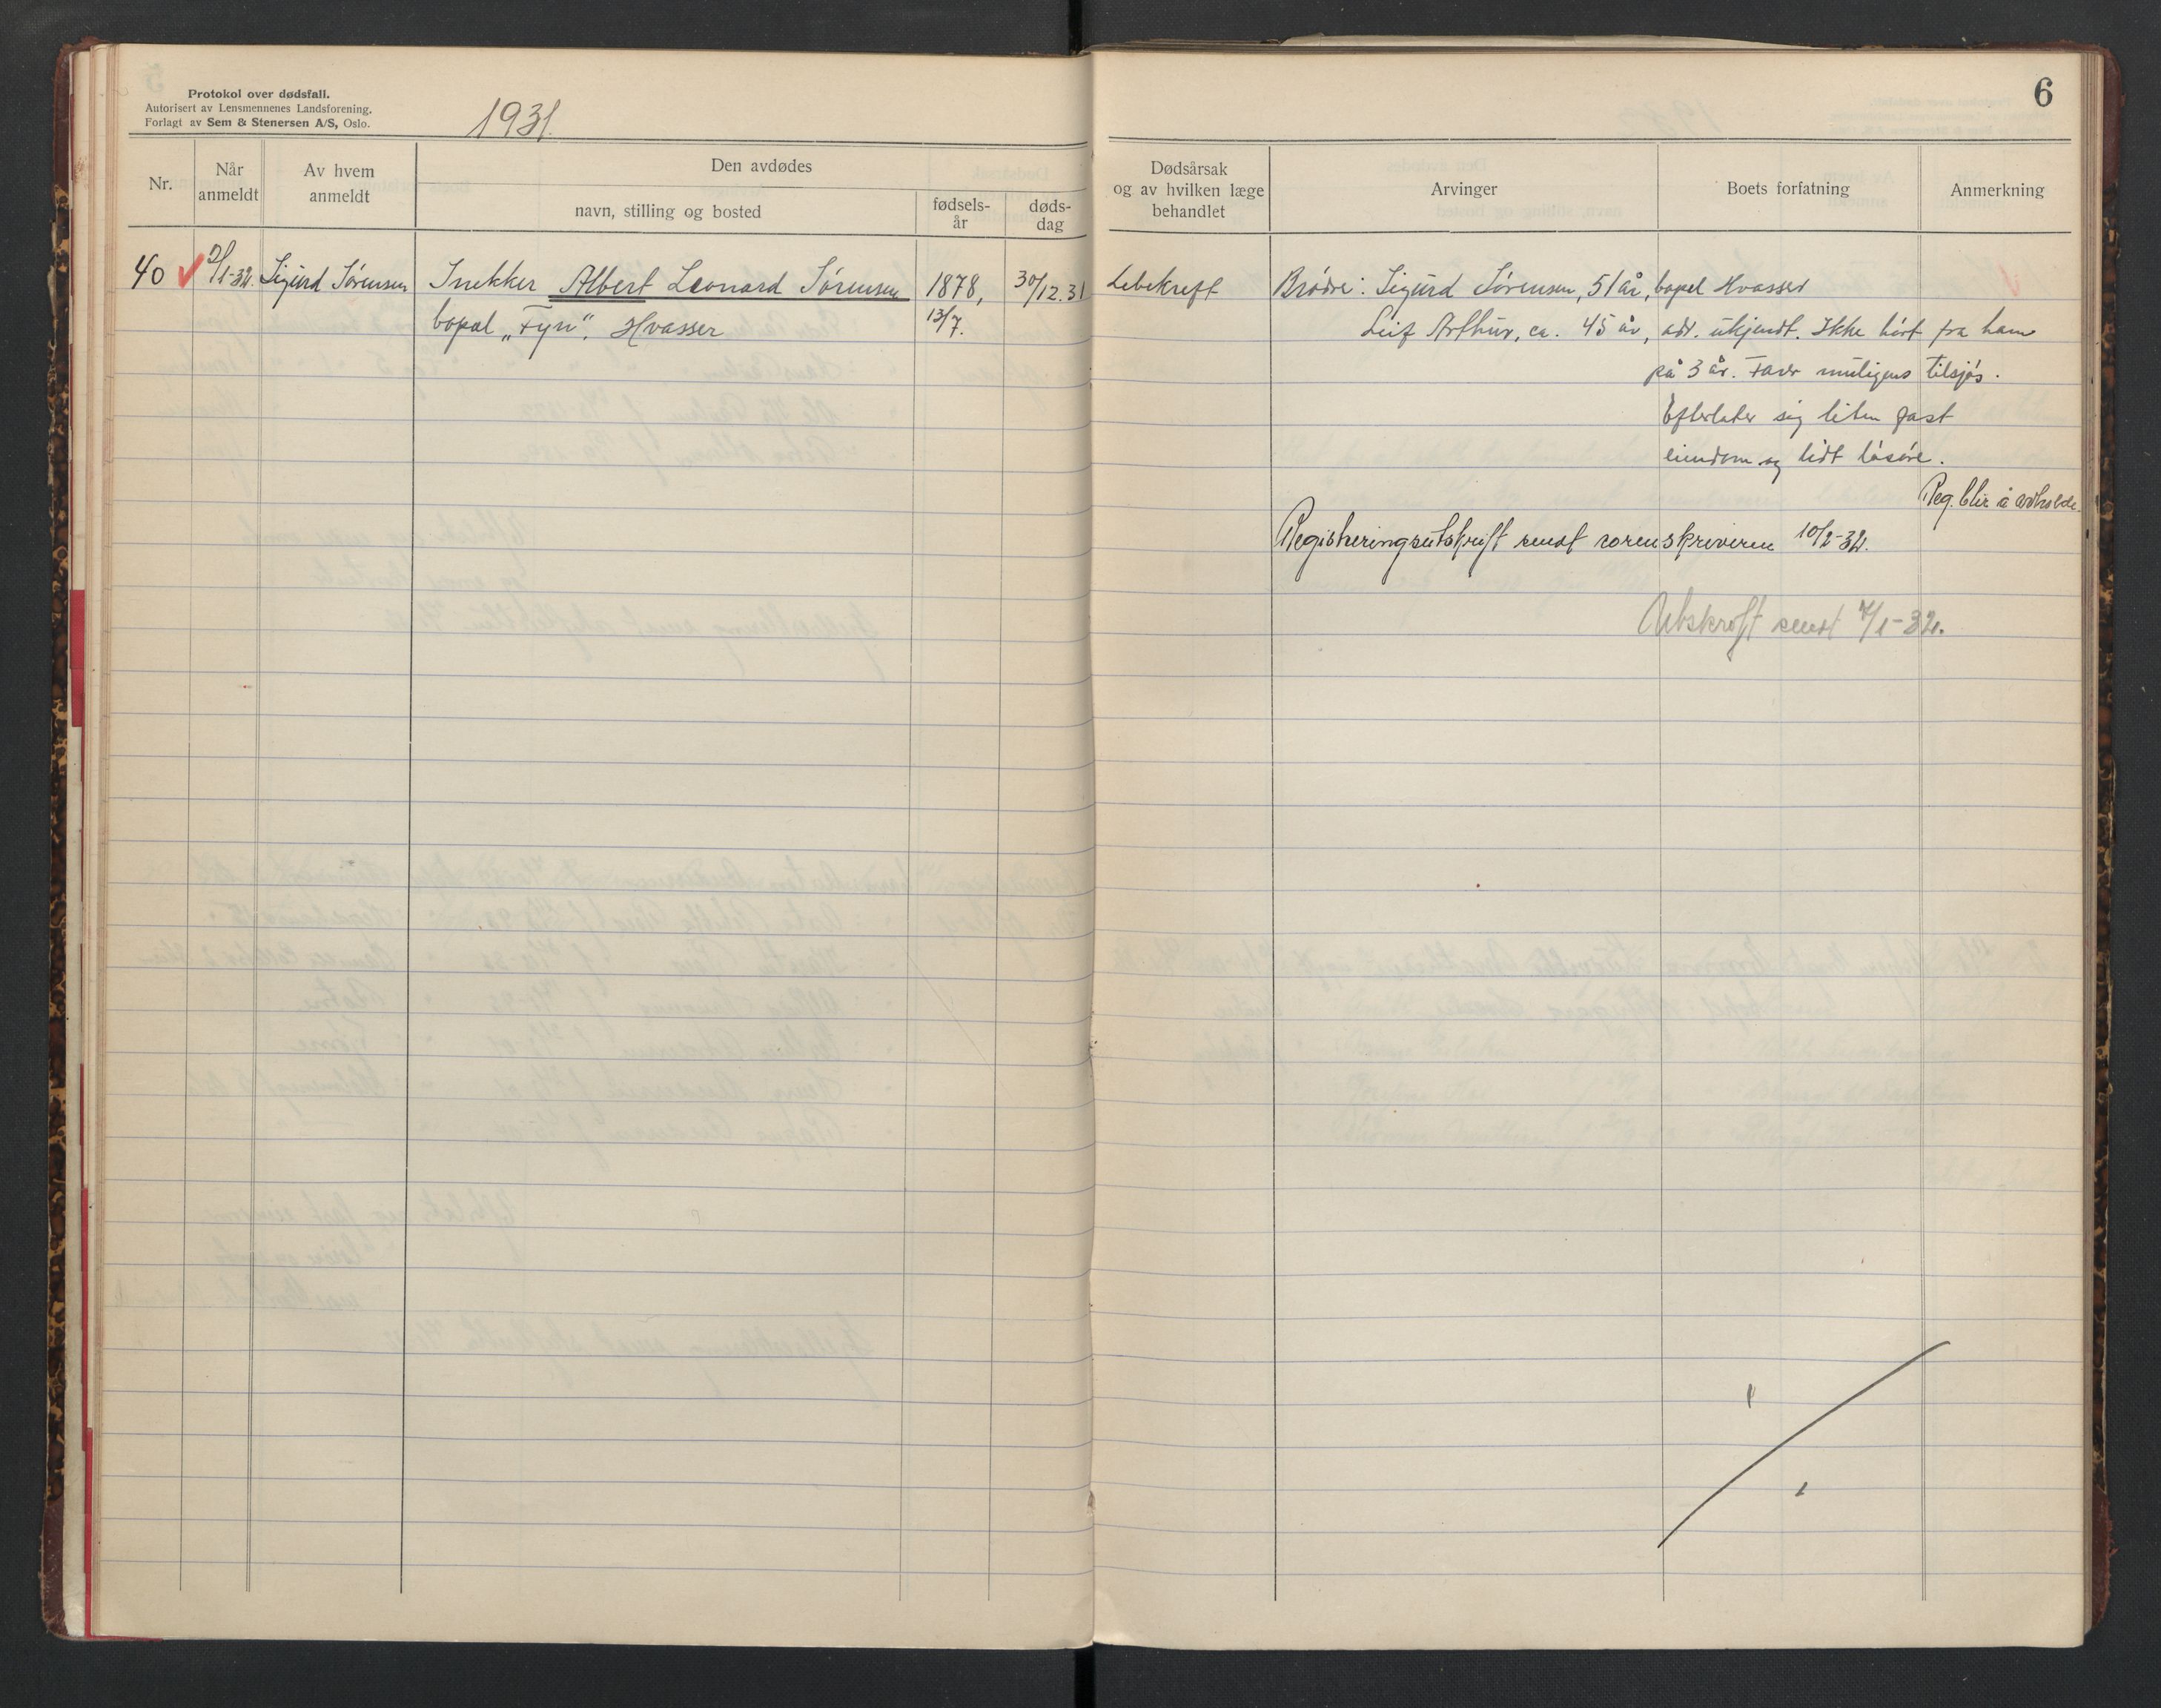 Protokol over dødsfall.
Autorisert av Lensmennenes Landsforening.
Forlagt av Sem & Stenersen A/S, Oslo.
1931.
Nr.
Når anmeldt
Av hvem anmeldt
Den avdødes
navn, stilling og bosted
fødsels-
år
døds-
dag
40 2/1-32. Sigurd Sørensen Snekker Albert Leonard Sørensen 1878, 30/12.31
bopæl „Fyn“, Hvasser 13/7.
6
Dødsårsak
og av hvilken læge
behandlet
Arvinger
Boets forfatning
Anmerkning
Lebekreft Brødre: Sigurd Sørensen, 51 år, bopel Hvasser
Leif Arthur, ca. 45 år, adr. ukjendt. Ikke hørt fra ham
på 3 år. Farer muligens tilsjøs.
Efterlater sig liten fast
eiendom og lidt løsøre.
Reg. blir å avholde.
Registreringsutskrift sendt sorenskriveren 10/2-32.
Utskrift sendt 4/1-32.